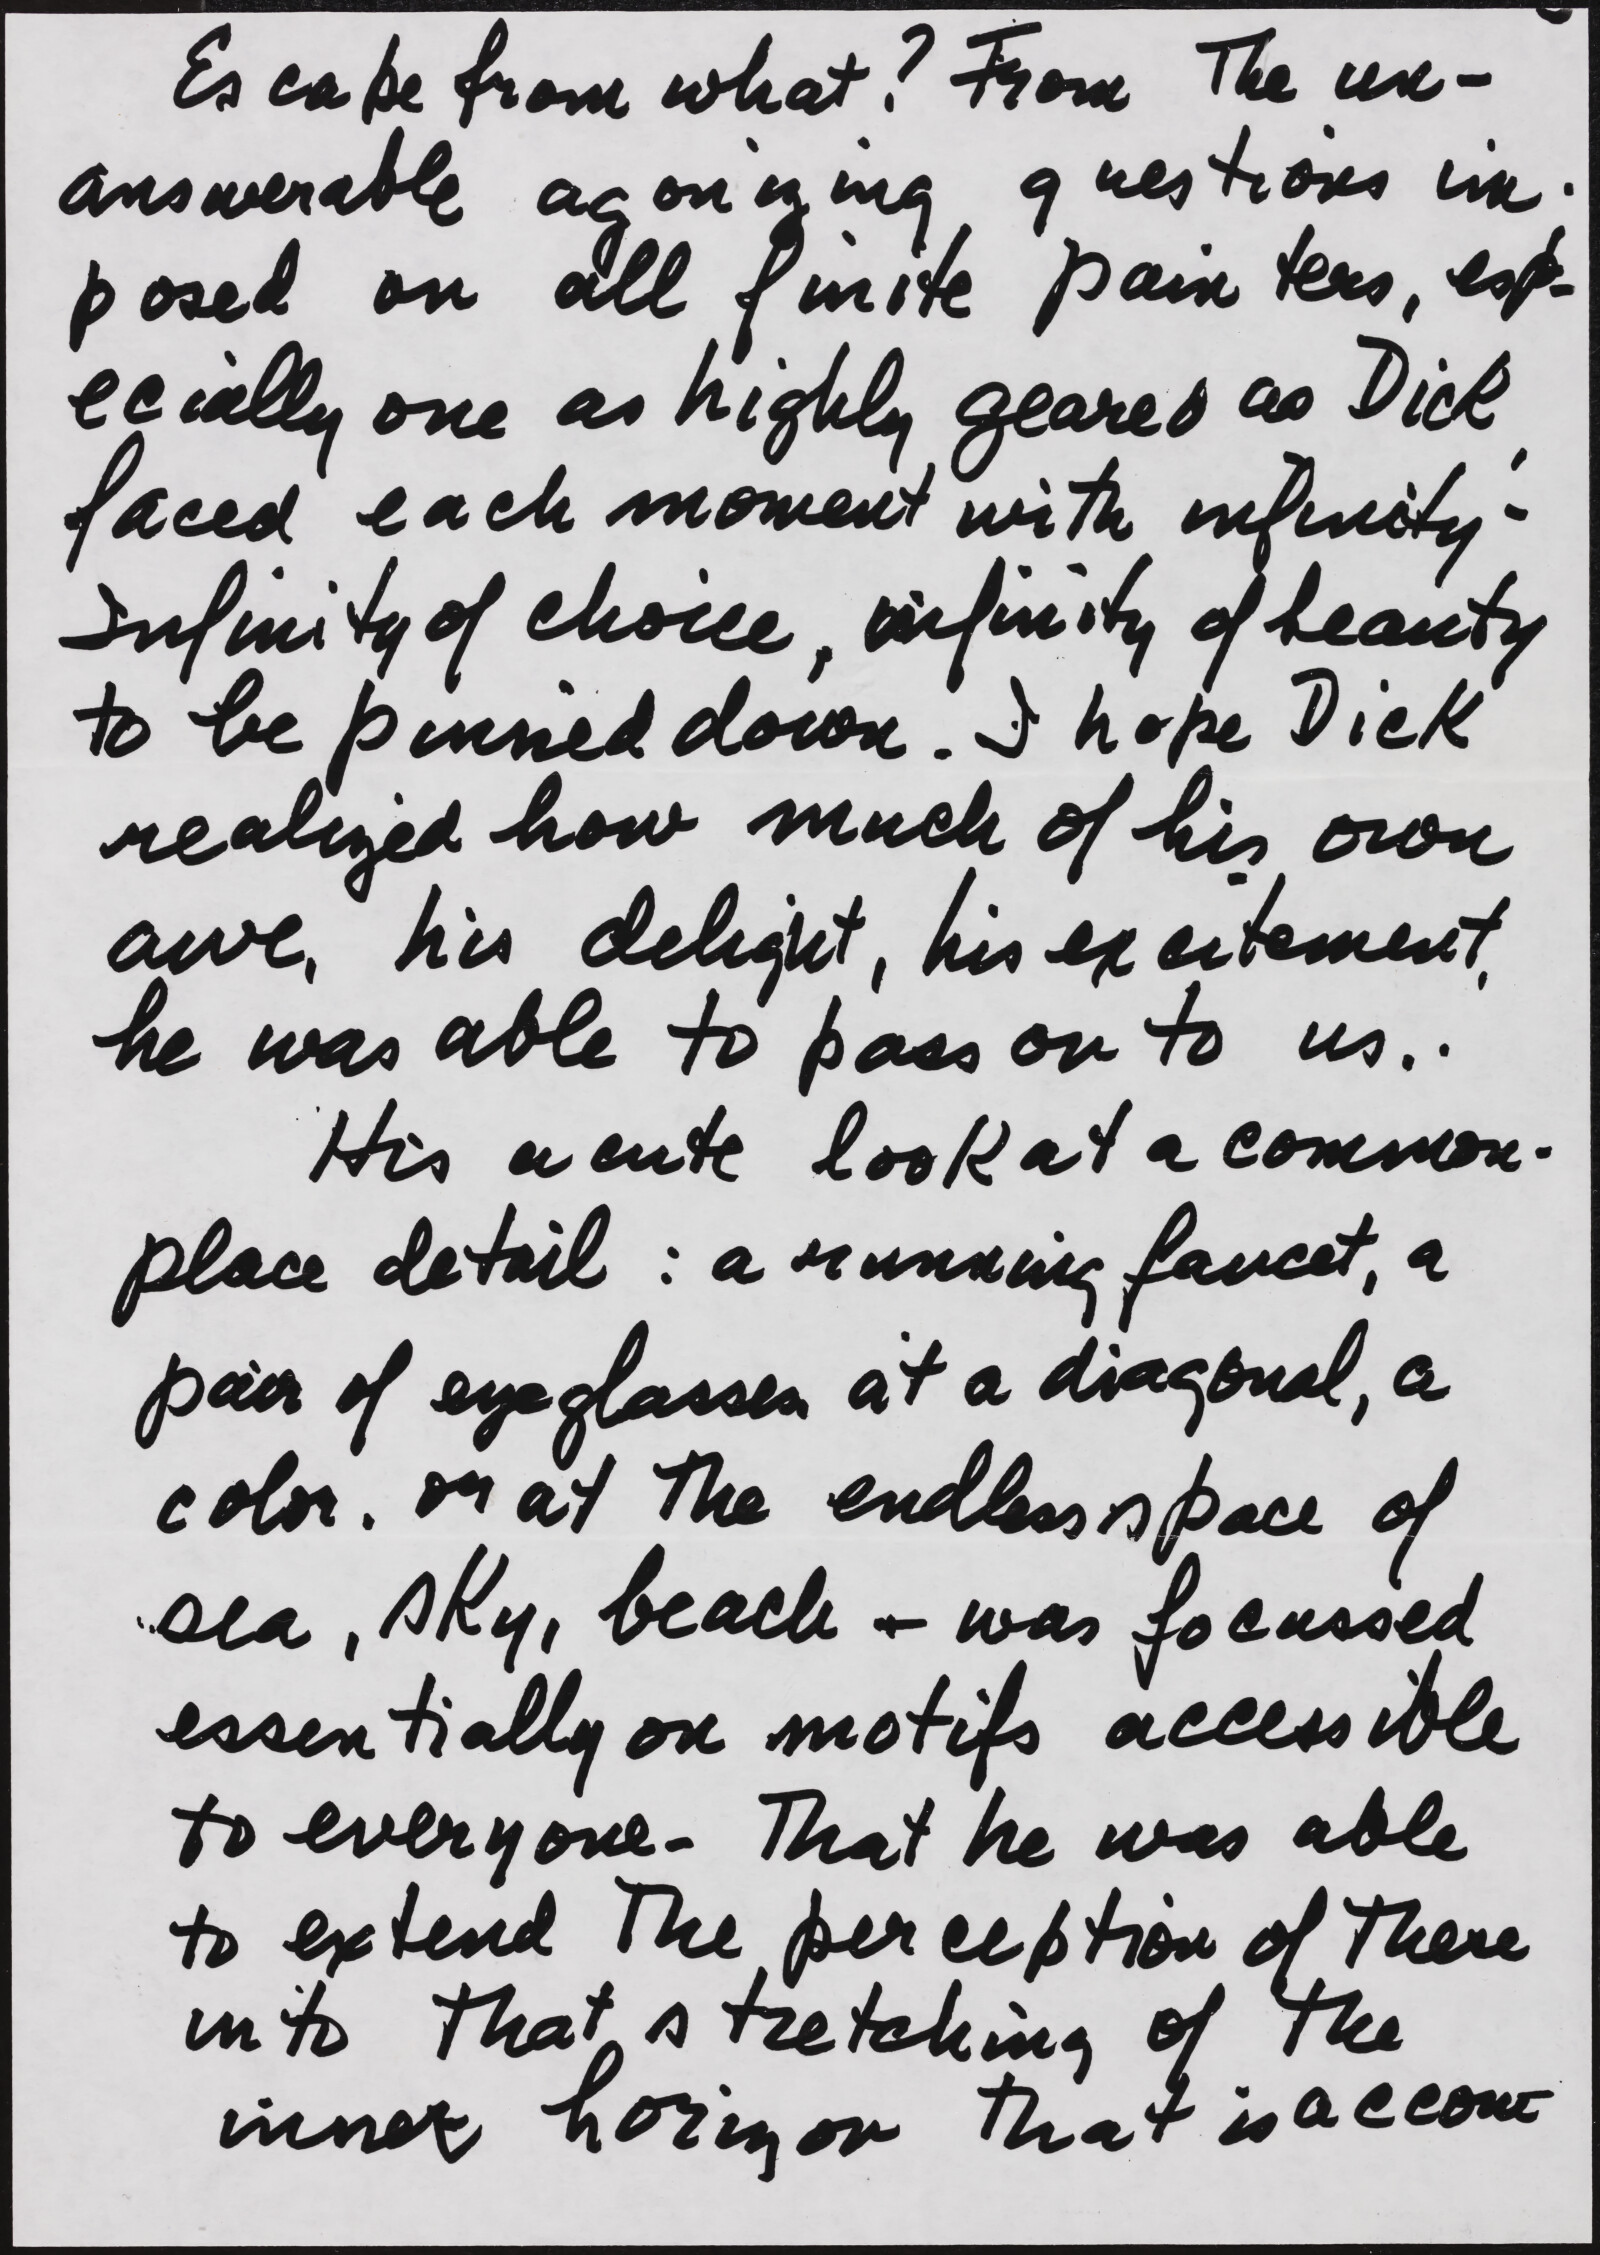 Escape from what? From The un-
answerable agonizing questions im-
posed on all finite painters, esp-
ecially one as highly geared as Dick,
faced each moment with infinity-
Infinity of choice, infinity of beauty
to be pinned down. I hope Dick
realized how much of his own
awe, his delight, his excitement,
he was able to pass on to us..
His acute look at a common-
place detail : a running faucet, a
pair of eyeglasses at a diagonal, a
color. or at The endless space of
sea, sky, beach - was focussed
essentially on motifs accessible
to everyone- That he was able
to extend The perception of These
into That stretching of The
inner horizon That is accom-